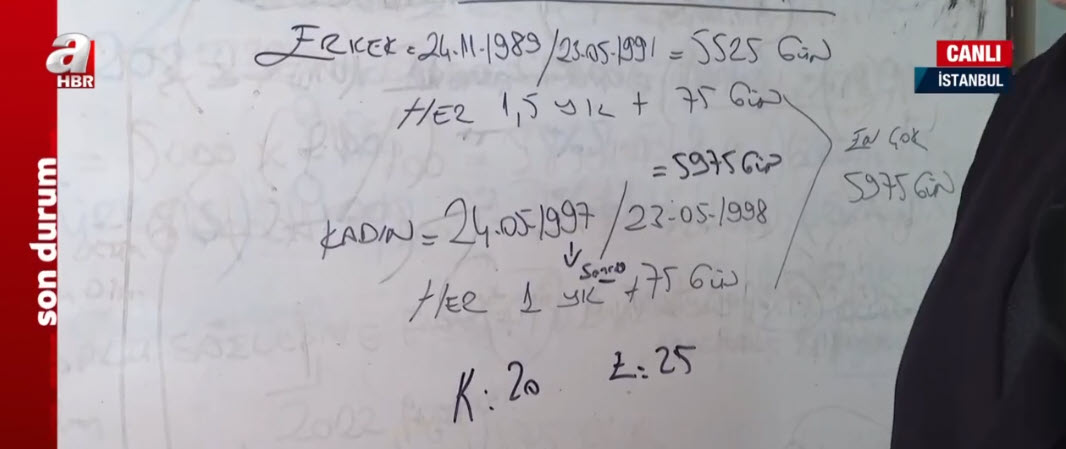 a
HBR
son durum
CANLI
İSTANBUL
ERKEK = 24.11.1989 / 23.05.1991 = 5525 Gün
HER 1,5 YIL + 75 Gün
= 5975 Gün
En çok
5975 Gün
KADIN = 24.05.1997 / 23.05.1998
↓ Sonra
HER 1 YIL + 75 Gün
K: 20 E: 25